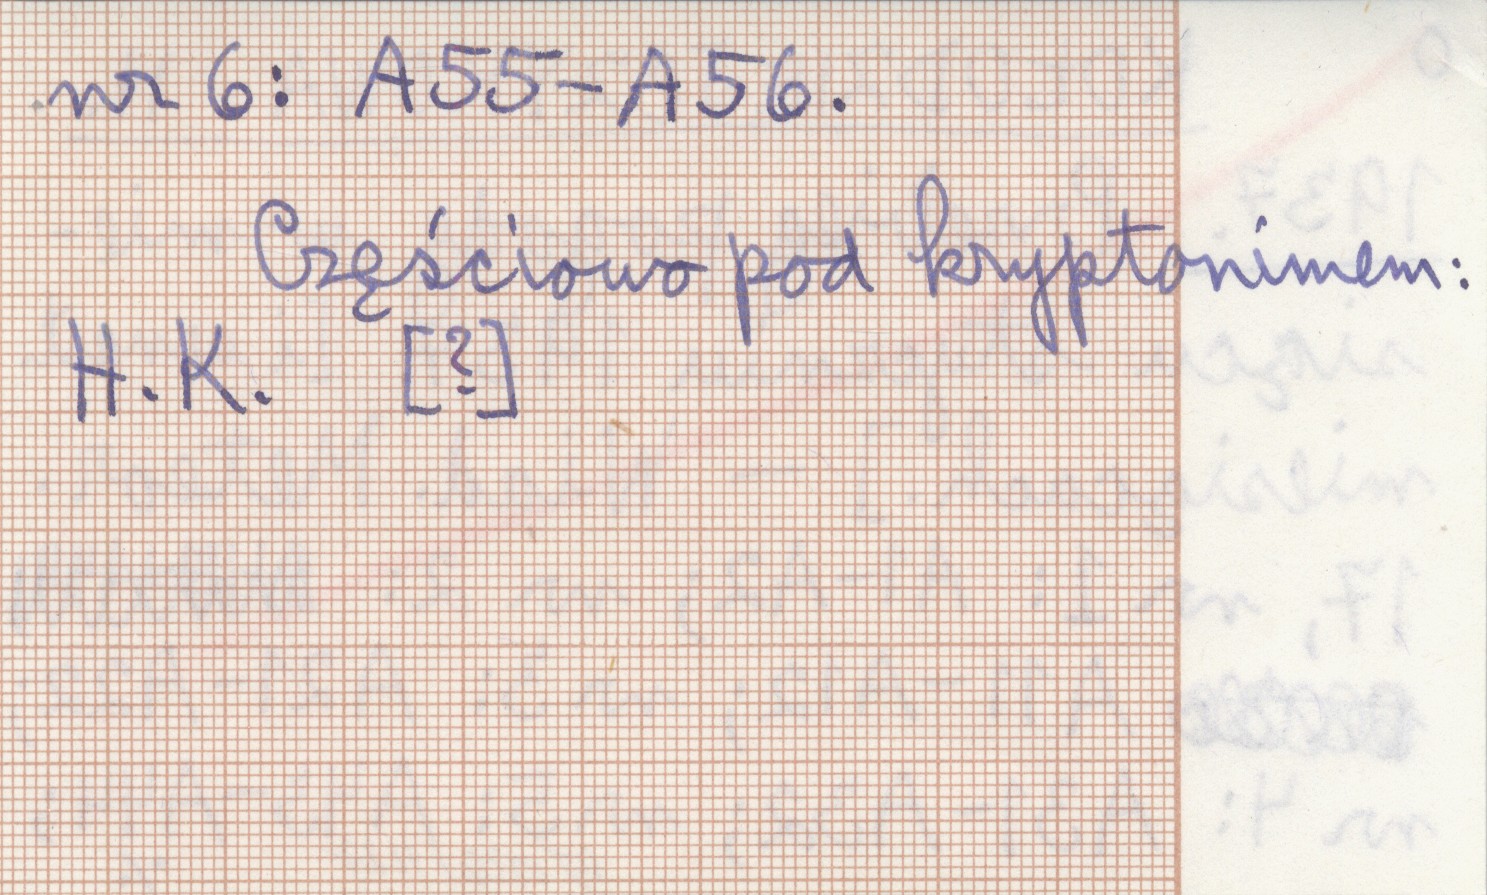 nr 6: A55-A56.
Częściowo pod kryptonimem:
H.K. [?]